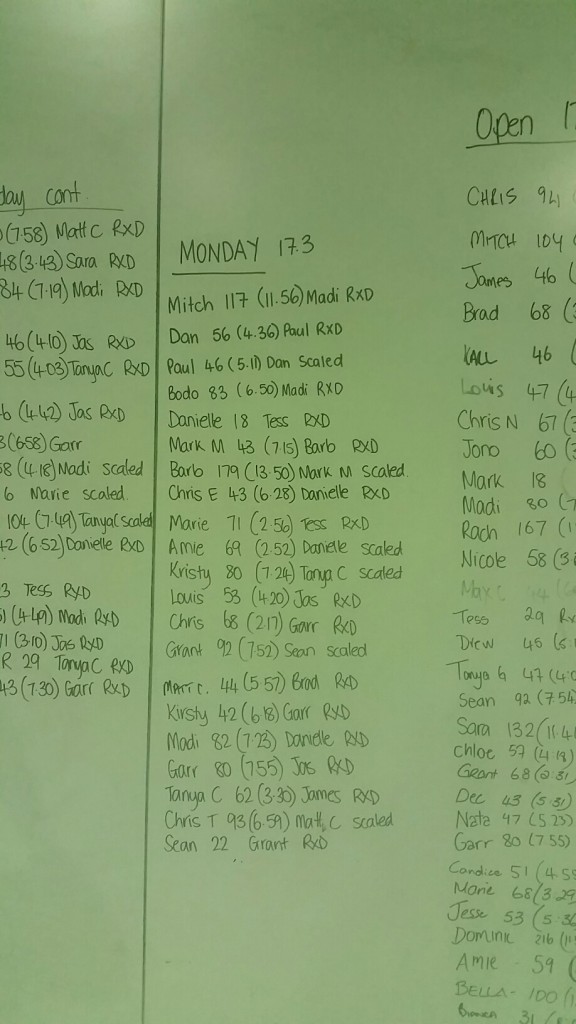 day cont.
(7.58) Matt C RxD
48 (3.43) Sara RxD
84 (7.19) Madi RxD
46 (4.10) Jas RxD
55 (4.03) Tanya C RxD
6 (4.42) Jas RxD
3 (6.58) Garr
58 (4.18) Madi scaled
6 Marie scaled.
104 (7.49) Tanya C scaled
42 (6.52) Danielle RxD
3 Tess RxD
51 (4.49) Madi RxD
71 (3.10) Jas RxD
R 29 Tanya C RxD
43 (7.30) Garr RxD
MONDAY 17.3
Mitch 117 (11.56) Madi RxD
Dan 56 (4.36) Paul RxD
Paul 46 (5.11) Dan Scaled
Bodo 83 (6.50) Madi RxD
Danielle 18 Tess RxD
Mark M 43 (7.15) Barb RxD
Barb 179 (13.50) Mark M Scaled.
Chris E 43 (6.28) Danielle RxD
Marie 71 (2.56) Tess RxD
Amie 69 (2.52) Danielle scaled
Kristy 80 (7.24) Tanya C scaled
Louis 53 (4.20) Jas RxD
Chris 68 (2.17) Garr RxD
Grant 92 (7.52) Sean scaled
MATT C. 44 (5.57) Brad RxD
Kirsty 42 (6.18) Garr RxD
Madi 82 (7.23) Danielle RxD
Garr 80 (7.55) Jas RxD
Tanya C 62 (3.30) James RxD
Chris T 93 (6.59) Matt C scaled
Sean 22 Grant RxD
Open 17
CHRIS 94 (
MITCH 104
James 46 (
Brad 68 (3
46 (
Louis 47 (4
Chris N 67 (3
Jono 60 (3
Mark 18
Madi 80 (7
Rach 167 (1
Nicole 58 (3
Tess 29 Rx
Drew 46 (5.
Tanya G 47 (4.0
Sean 92 (7.54
Sara 132 (11.4
Chloe 57 (4.18)
Grant 68 (2.31
Dec 43 (5.31)
Nata 47 (5.23)
Garr 80 (7.55)
Candice 51 (4.55
Marie 68 (3.29
Jesse 53 (5.36
Dominic 216 (11
Amie - 59 (
BELLA - 100 (1
31 (